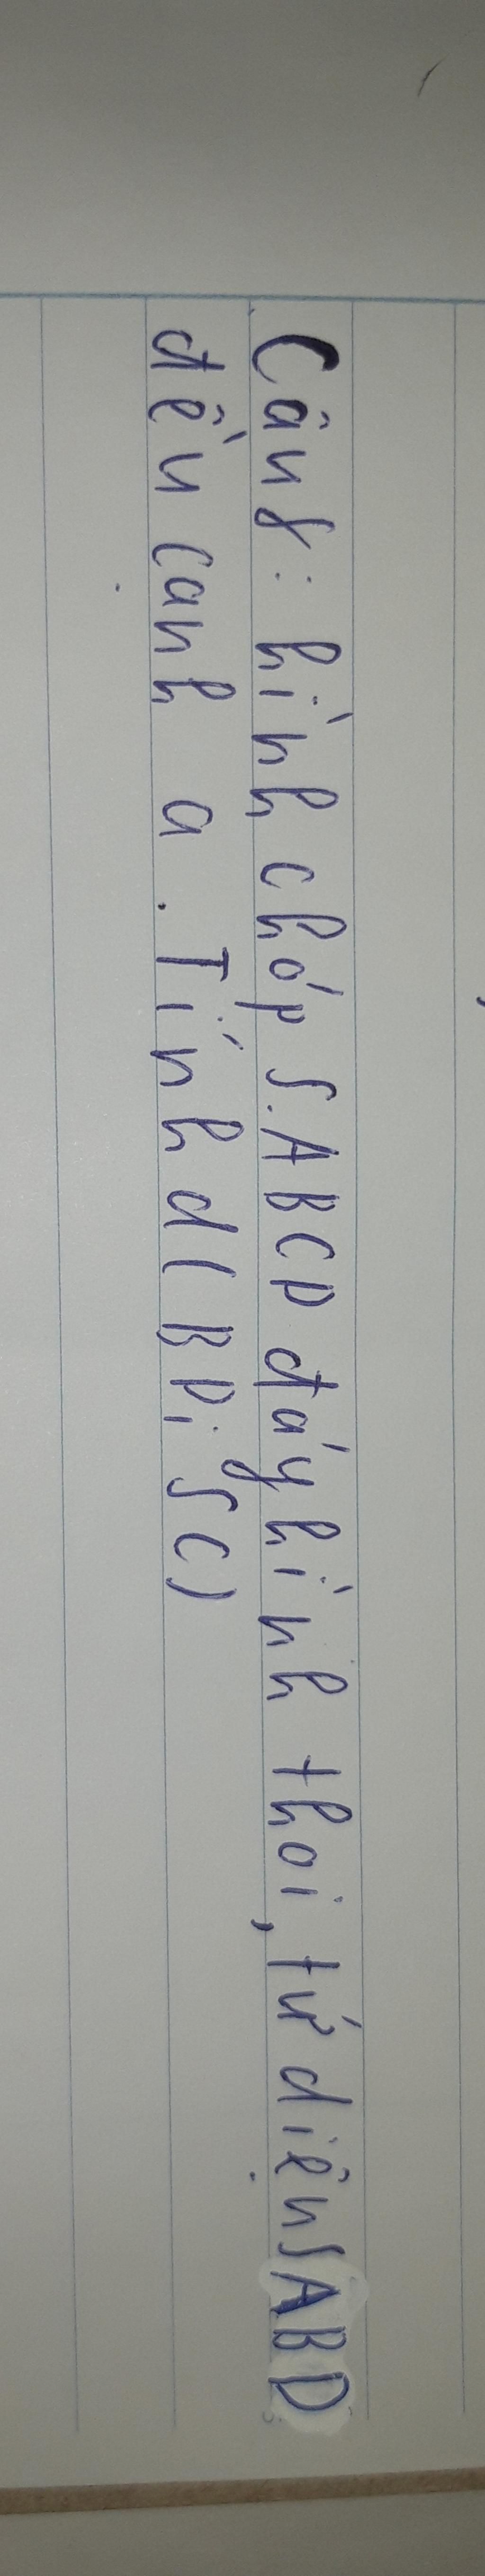 Câu 8: hình chóp S.ABCD đáy hình thoi, tứ diện SABD
đều cạnh a. Tính d(BD; SC)